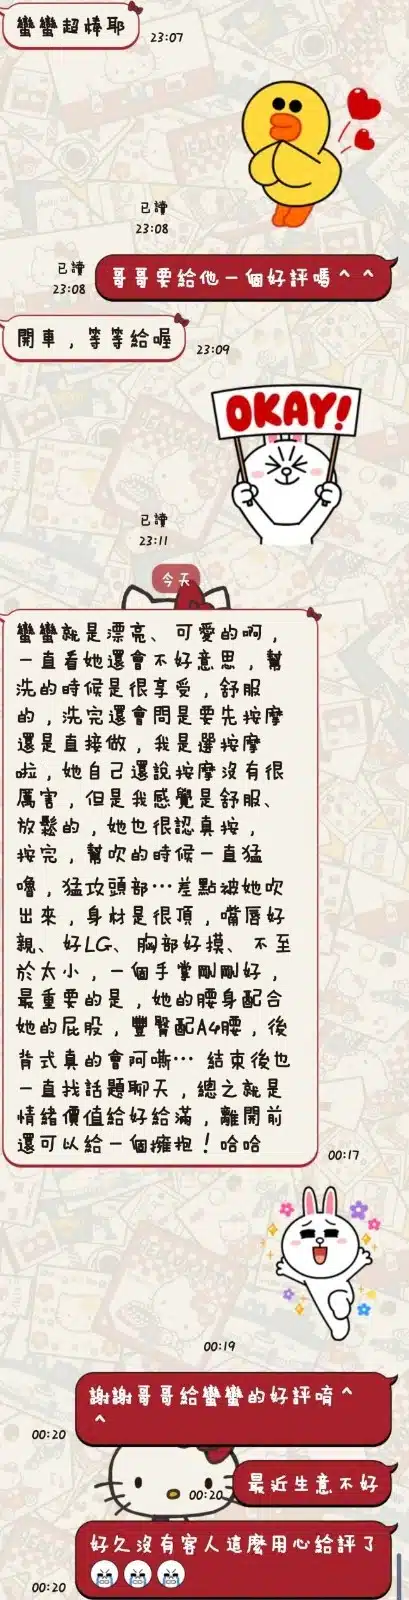 蠻蠻超棒耶
23:07
已讀
23:08
已讀
23:08
哥哥要給他一個好評嗎^ ^
開車，等等給喔
23:09
OKAY!
已讀
23:11
今天
蠻蠻就是漂亮、可愛的啊，
一直看她還會不好意思，幫
洗的時候是很享受，舒服
的，洗完還會問是要先按摩
還是直接做，我是選按摩
啦，她自己還說按摩沒有很
厲害，但是我感覺是舒服、
放鬆的，她也很認真按，
按完，幫吹的時候一直猛
嚕，猛攻頭部…差點被她吹
出來，身材是很頂，嘴唇好
親、好LG、胸部好摸、不至
於太小，一個手掌剛剛好，
最重要的是，她的腰身配合
她的屁股，豐臀配A4腰，後
背式真的會阿嘶… 結束後也
一直找話題聊天，總之就是
情緒價值給好給滿，離開前
還可以給一個擁抱！哈哈
00:17
00:19
謝謝哥哥給蠻蠻的好評唷^
^
00:20
最近生意不好
00:20
好久沒有客人這麼用心給評了
😭😭😭
00:20